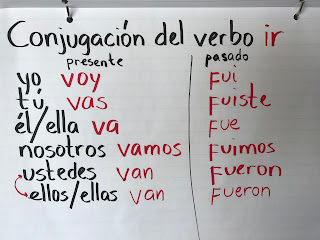 Conjugación del verbo ir
presente pasado
yo voy Fui
tú vas Fuiste
él/ella va Fue
nosotros vamos Fuimos
ustedes van Fueron
ellos/ellas van Fueron